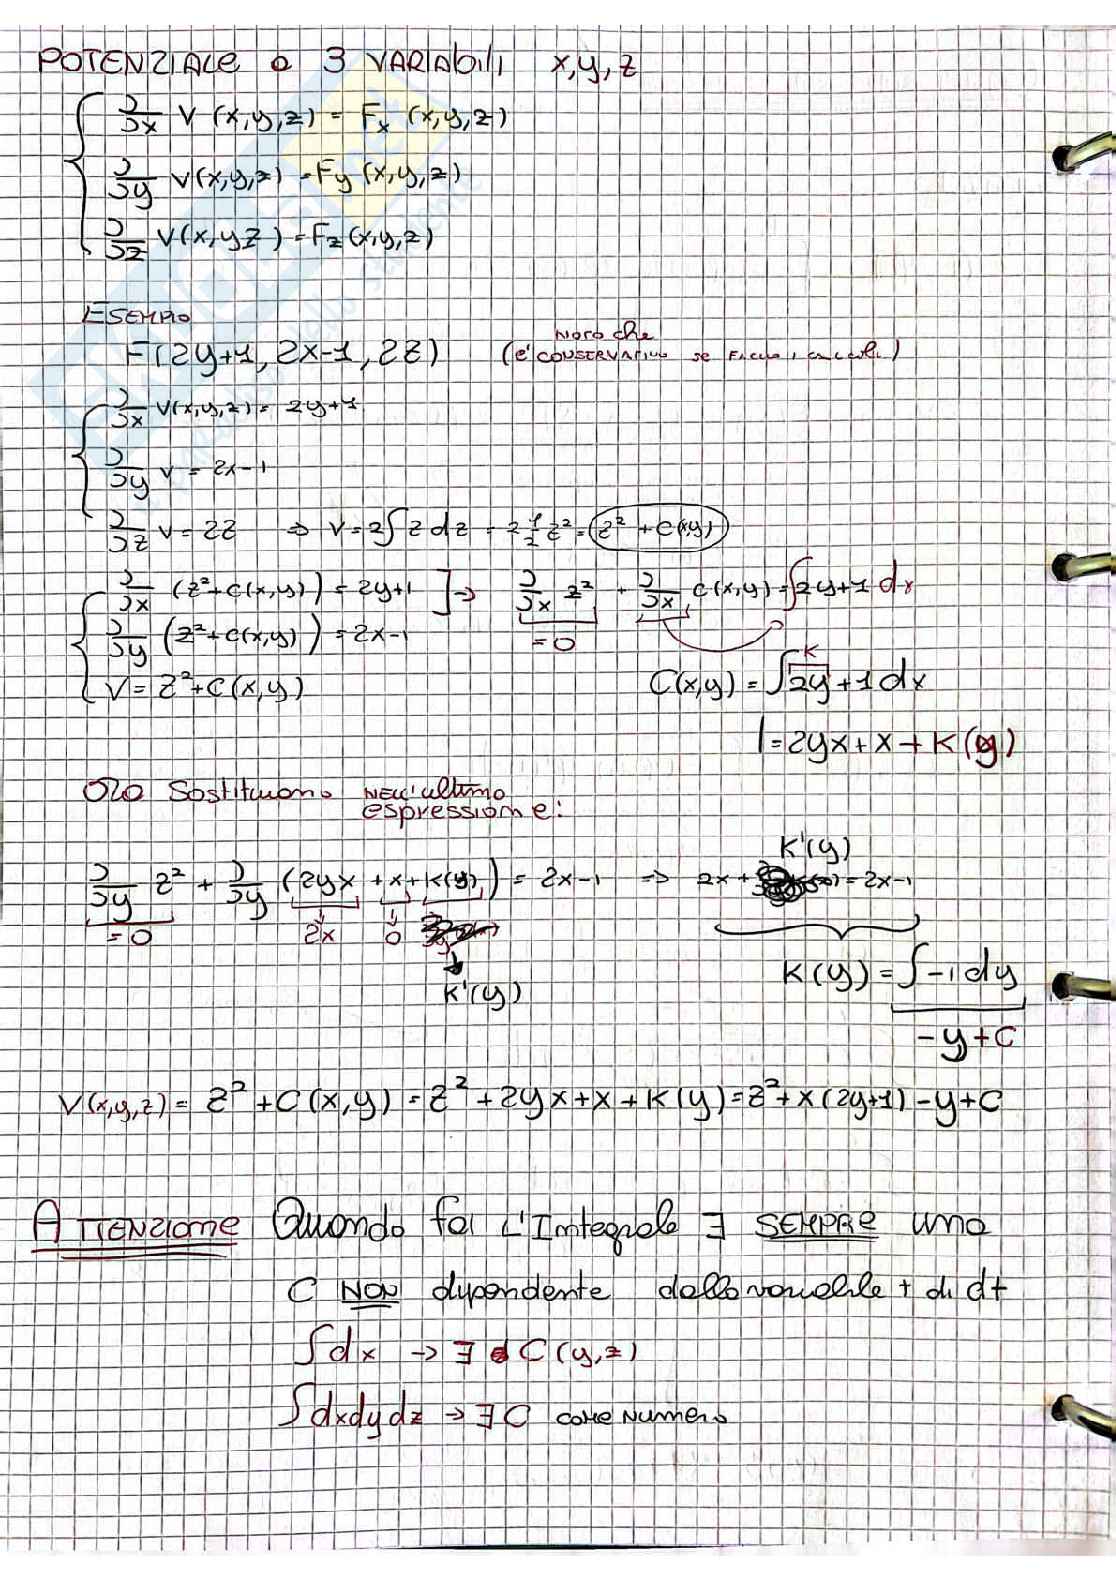 POTENZIALE a 3 VARIABILI x,y,z
∂/∂x V(x,y,z) = Fx (x,y,z)
∂/∂y V(x,y,z) = Fy (x,y,z)
∂/∂z V(x,yz) = Fz (x,y,z)
ESEMPIO
F(2y+1, 2x-1, 2z) (NOTO che è CONSERVATIVO se FACCIO i calcoli)
∂/∂x V(x,y,z) = 2y+1
∂/∂y V = 2x-1
∂/∂z V = 2z ⇒ V = 2∫z dz = 2 1/2 z² = z² + C(x,y)
∂/∂x (z²+C(x,y)) = 2y+1 ] → ∂/∂x z² + ∂/∂x C(x,y) = ∫2y+1 dx
= 0
∂/∂y (z²+C(x,y)) = 2x-1
K
V = z²+C(x,y) C(x,y) = ∫2y+1 dx
= 2yx + x + K(y)
ORA Sostituiamo NELL'ultima
espressione:
K'(y)
∂/∂y z² + ∂/∂y (2yx + x + K(y)) = 2x-1 ⇒ 2x + = 2x-1
= 0 2x 0
K'(y)
K(y) = ∫-1 dy
-y + C
V(x,y,z) = z² + C(x,y) = z² + 2yx + x + K(y) = z² + x(2y+1) - y + C
ATTENZIONE Quando fai L'Integrale ∃ SEMPRE una
C NON dipendente dalla variabile t di dt
∫dx → ∃ C(y,z)
∫dxdydz → ∃ C come numero